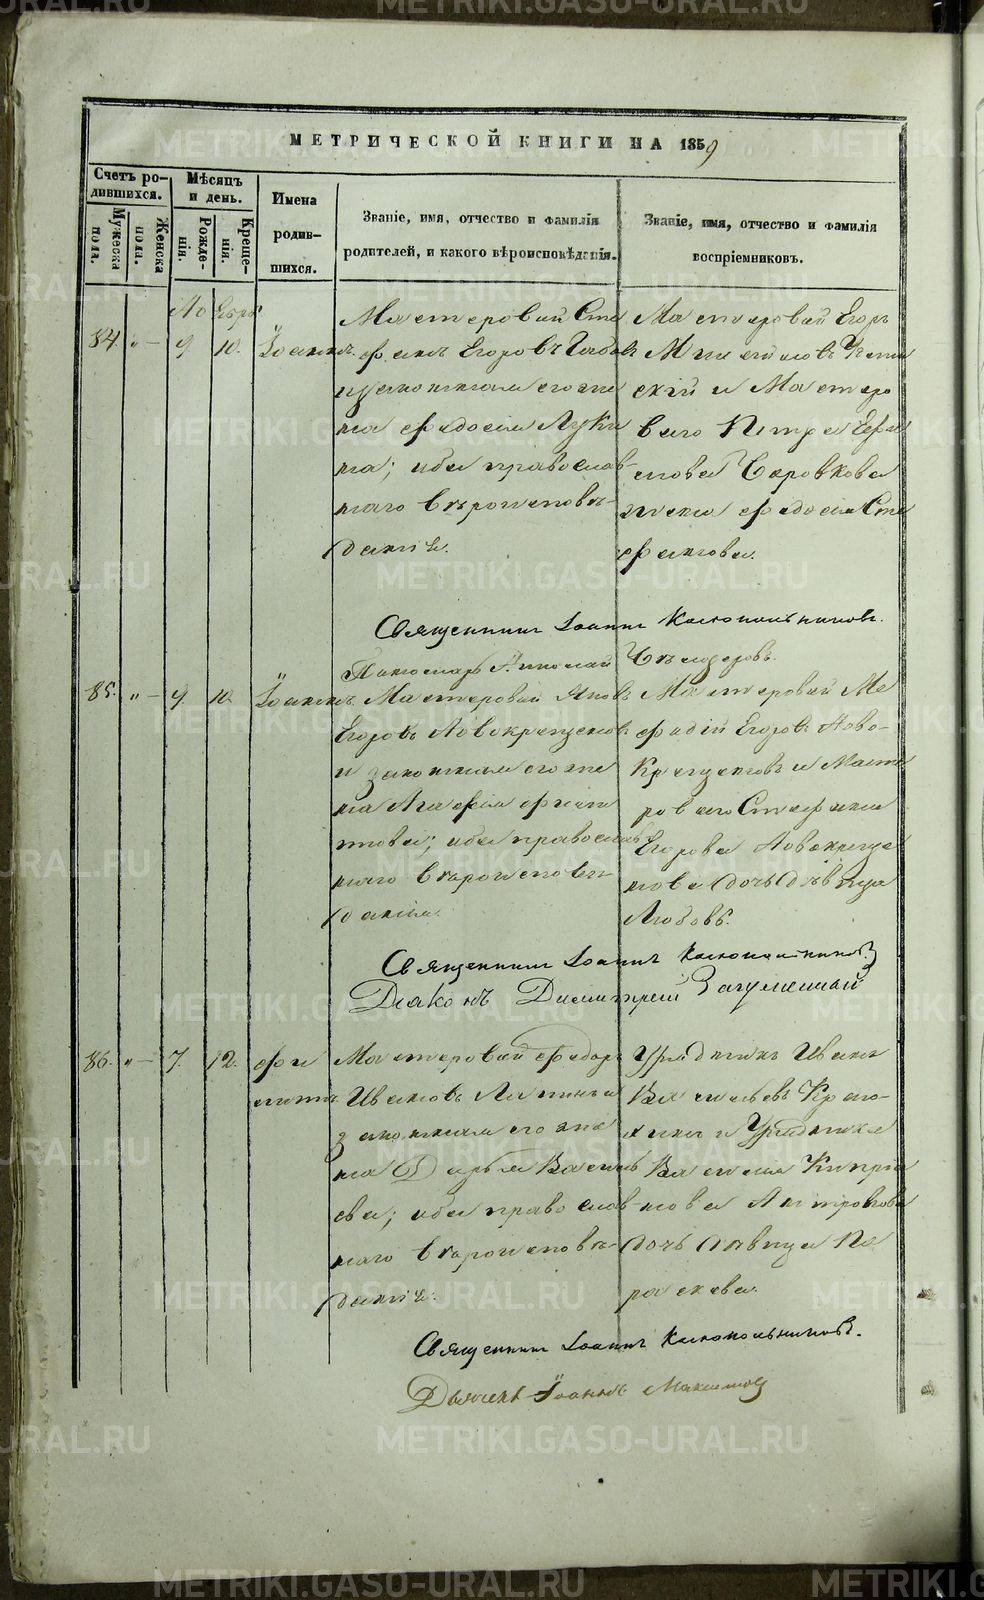 МЕТРИЧЕСКОЙ КНИГИ НА 1859
Счетъ ро-
дившихся.
Мужеска
пола.
Женска
пола.
Мѣсяцъ
и день.
Рожде-
нія.
Креще-
нія.
Имена
родив-
шихся.
Званіе, имя, отчество и фамилія
родителей, и какого вѣроисповѣданія.
Званіе, имя, отчество и фамилія
воспріемниковъ.
84. „ — 9 10. Іоаннъ.
Мастеровой Сте
фанъ Егоровъ
и законная его же
на Федосія Луки
на; оба православ-
наго вѣроисповѣ-
данія.
Мастеровой Егоръ
скій и Мастеро
ваго Петра Ефи
мова Боровкова
жена Федосія Сте
фанова.
Священникъ Іоаннъ Колокольниковъ.
Пономарь Николай
85. „ — 9. 10. Іоаннъ.
Мастеровой Яковъ
Егоровъ Новокрещеновъ
и законная его же
на Агафія Фили
пова; оба православ
наго вѣроисповѣ
данія.
Мастеровой Ме
фодій Егоровъ Ново-
крещеновъ и Масте
роваго Стефана
Егорова Новокреще
нова дочь дѣвица
Любовь.
Священникъ Іоаннъ Колокольниковъ
Діаконъ Димитрій Загуменный
86. „ — 7. 12. Фи
липпъ
Мастеровой Федоръ
Ивановъ Лапинъ и
законная его же
на Дарья Василь
ева; оба православ-
наго вѣроисповѣ-
данія.
Урядникъ Иванъ
Васильевъ
и Урядника
Василія Кипріа
нова
дочь дѣвица Па
раскева.
Священникъ Іоаннъ Колокольниковъ.
Дьячекъ Іоаннъ Максимовъ
METRIKI.GASO-URAL.RU